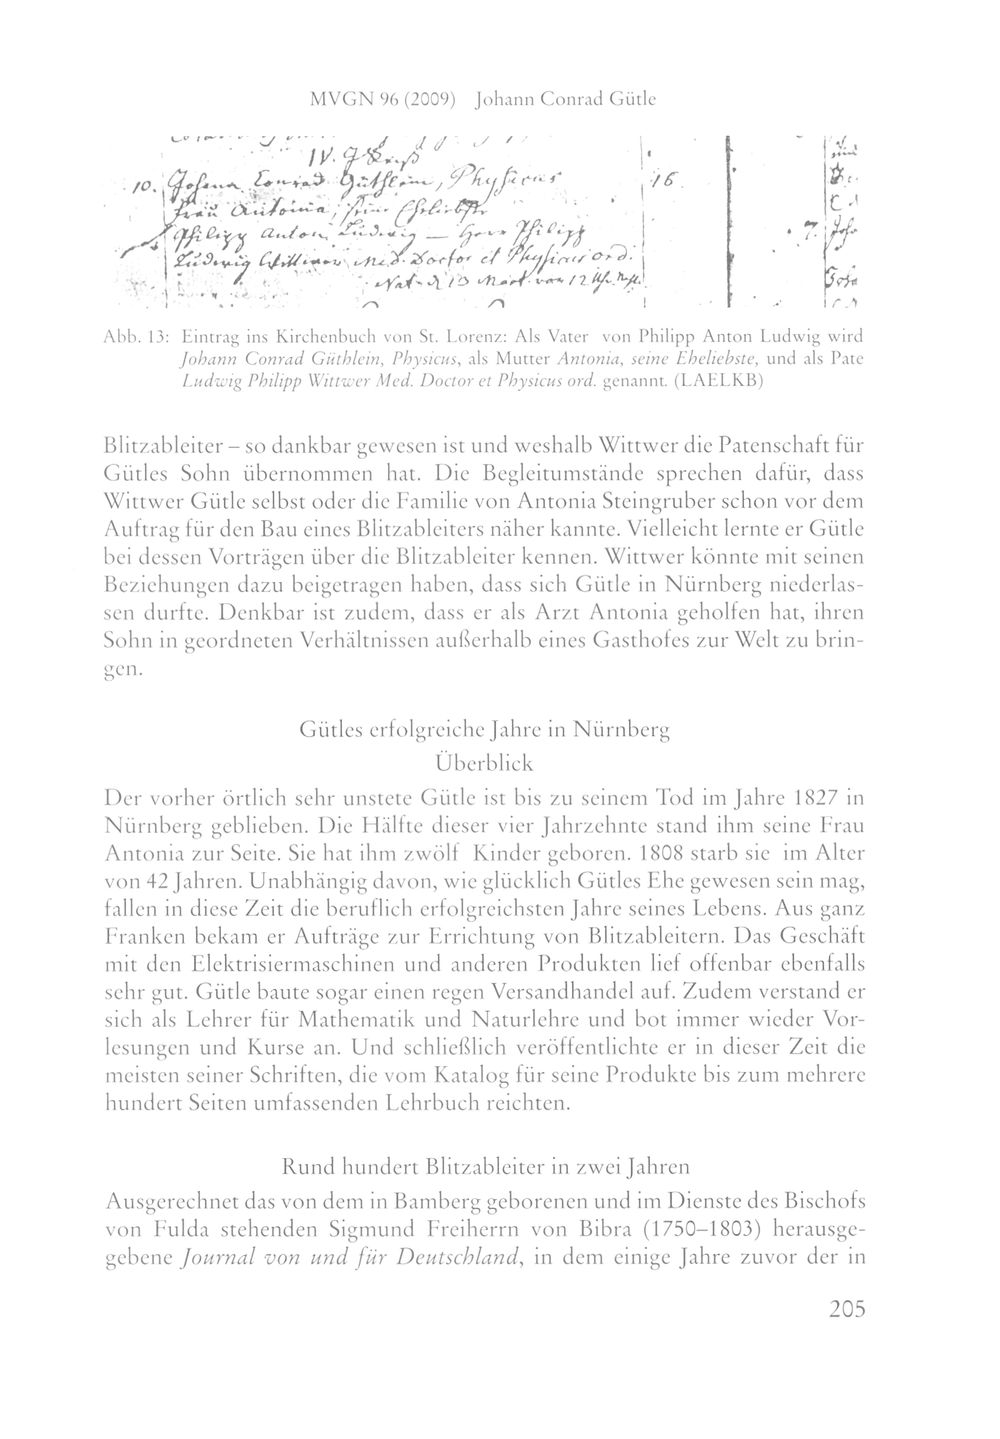 MVGN 96 (2009) Johann Conrad Gütle
IV. G
10. Johann Conrad Güthlein, Physicus 16
Frau Antonia, seine Eheliebste
Philipp Anton Ludwig — Herr Philipp 7. Joh
Ludwig Wittwer Med. Doctor et Physicus ord.
Nat. d 13 Mart. von 12 Uhr
Abb. 13: Eintrag ins Kirchenbuch von St. Lorenz: Als Vater von Philipp Anton Ludwig wird
Johann Conrad Güthlein, Physicus, als Mutter Antonia, seine Eheliebste, und als Pate
Ludwig Philipp Wittwer Med. Doctor et Physicus ord. genannt. (LAELKB)
Blitzableiter – so dankbar gewesen ist und weshalb Wittwer die Patenschaft für
Gütles Sohn übernommen hat. Die Begleitumstände sprechen dafür, dass
Wittwer Gütle selbst oder die Familie von Antonia Steingruber schon vor dem
Auftrag für den Bau eines Blitzableiters näher kannte. Vielleicht lernte er Gütle
bei dessen Vorträgen über die Blitzableiter kennen. Wittwer könnte mit seinen
Beziehungen dazu beigetragen haben, dass sich Gütle in Nürnberg niederlas-
sen durfte. Denkbar ist zudem, dass er als Arzt Antonia geholfen hat, ihren
Sohn in geordneten Verhältnissen außerhalb eines Gasthofes zur Welt zu brin-
gen.
Gütles erfolgreiche Jahre in Nürnberg
Überblick
Der vorher örtlich sehr unstete Gütle ist bis zu seinem Tod im Jahre 1827 in
Nürnberg geblieben. Die Hälfte dieser vier Jahrzehnte stand ihm seine Frau
Antonia zur Seite. Sie hat ihm zwölf Kinder geboren. 1808 starb sie im Alter
von 42 Jahren. Unabhängig davon, wie glücklich Gütles Ehe gewesen sein mag,
fallen in diese Zeit die beruflich erfolgreichsten Jahre seines Lebens. Aus ganz
Franken bekam er Aufträge zur Errichtung von Blitzableitern. Das Geschäft
mit den Elektrisiermaschinen und anderen Produkten lief offenbar ebenfalls
sehr gut. Gütle baute sogar einen regen Versandhandel auf. Zudem verstand er
sich als Lehrer für Mathematik und Naturlehre und bot immer wieder Vor-
lesungen und Kurse an. Und schließlich veröffentlichte er in dieser Zeit die
meisten seiner Schriften, die vom Katalog für seine Produkte bis zum mehrere
hundert Seiten umfassenden Lehrbuch reichten.
Rund hundert Blitzableiter in zwei Jahren
Ausgerechnet das von dem in Bamberg geborenen und im Dienste des Bischofs
von Fulda stehenden Sigmund Freiherrn von Bibra (1750–1803) herausge-
gebene Journal von und für Deutschland, in dem einige Jahre zuvor der in
205